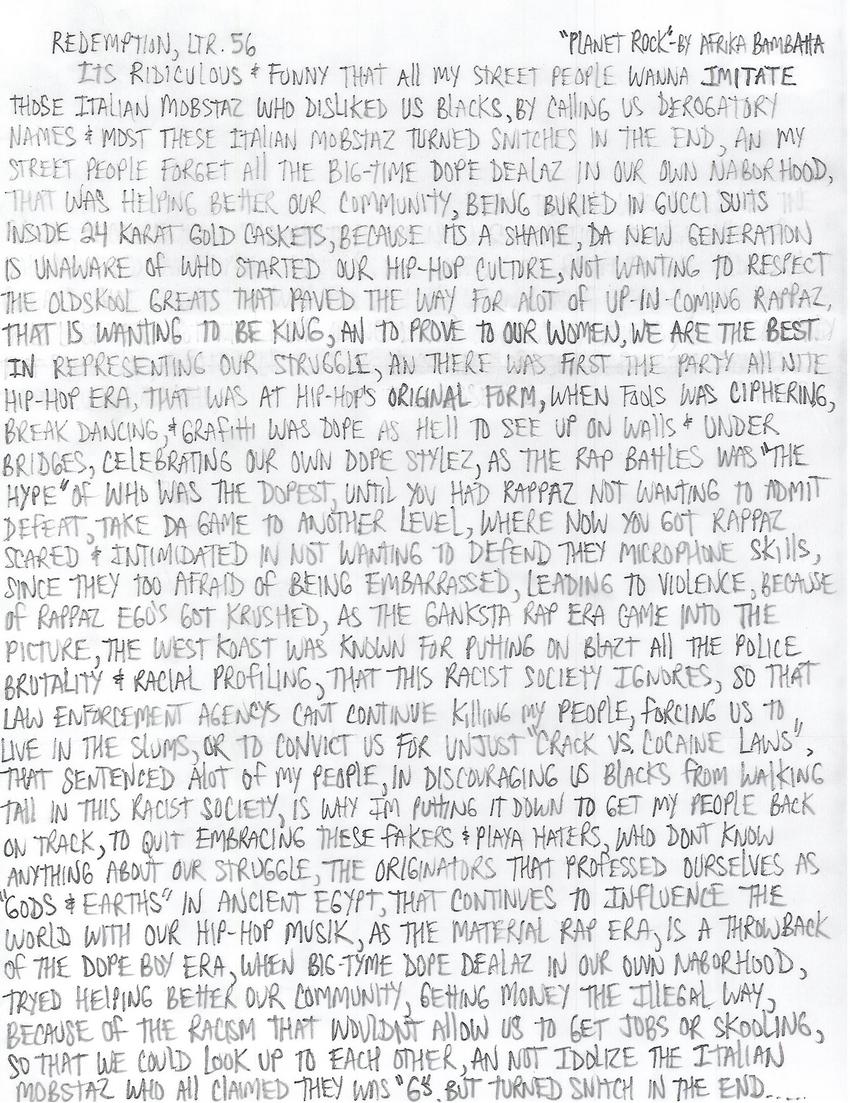 REDEMPTION, LTR. 56 "PLANET ROCK"-BY AFRIKA BAMBATTA
ITS RIDICULOUS & FUNNY THAT All MY STREET PEOPLE WANNA IMITATE
THOSE ITALIAN MOBSTAZ WHO DISLIKED US BLACKS, BY CALLING US DEROGATORY
NAMES & MOST THESE ITALIAN MOBSTAZ TURNED SNITCHES IN THE END, AN MY
STREET PEOPLE FORGET All THE BIG-TIME DOPE DEALAZ IN OUR OWN NABORHOOD,
THAT WAS HELPING BETTER OUR COMMUNITY, BEING BURIED IN GUCCI SUITS
INSIDE 24 KARAT GOLD CASKETS, BECAUSE ITS A SHAME, DA NEW GENERATION
IS UNAWARE OF WHO STARTED OUR HIP-HOP CULTURE, NOT WANTING TO RESPECT
THE OLDSKOOL GREATS THAT PAVED THE WAY FOR ALOT OF UP-IN-COMING RAPPAZ,
THAT IS WANTING TO BE KING, AN TO PROVE TO OUR WOMEN, WE ARE THE BEST
IN REPRESENTING OUR STRUGGLE, AN THERE WAS FIRST THE PARTY All NITE
HIP-HOP ERA, THAT WAS AT HIP-HOP'S ORIGINAL FORM, WHEN FOOLS WAS CIPHERING,
BREAK DANCING, & GRAFITTI WAS DOPE AS HEll TO SEE UP ON WAllS & UNDER
BRIDGES, CELEBRATING OUR OWN DOPE STYLEZ, AS THE RAP BATTLES WAS "THE
HYPE" OF WHO WAS THE DOPEST, UNTIL YOU HAD RAPPAZ NOT WANTING TO ADMIT
DEFEAT, TAKE DA GAME TO ANOTHER LEVEL, WHERE NOW YOU GOT RAPPAZ
SCARED & INTIMIDATED IN NOT WANTING TO DEFEND THEY MICROPHONE SKIllS,
SINCE THEY TOO AFRAID OF BEING EMBARRASSED, LEADING TO VIOLENCE, BECAUSE
OF RAPPAZ EGO'S GOT KRUSHED, AS THE GANKSTA RAP ERA CAME INTO THE
PICTURE, THE WEST KOAST WAS KNOWN FOR PUTTING ON BLAZT All THE POLICE
BRUTALITY & RACIAL PROFILING, THAT THIS RACIST SOCIETY IGNORES, SO THAT
LAW ENFORCEMENT AGENCYS CANT CONTINUE KIllING MY PEOPLE, FORCING US TO
LIVE IN THE SLUMS, OR TO CONVICT US FOR UNJUST "CRACK VS. COCAINE LAWS",
THAT SENTENCED ALOT OF MY PEOPLE, IN DISCOURAGING US BLACKS FROM WALKING
TAll IN THIS RACIST SOCIETY, IS WHY IM PUTTING IT DOWN TO GET MY PEOPLE BACK
ON TRACK, TO QUIT EMBRACING THESE FAKERS & PLAYA HATERS, WHO DONT KNOW
ANYTHING ABOUT OUR STRUGGLE, THE ORIGINATORS THAT PROFESSED OURSELVES AS
"GODS & EARTHS" IN ANCIENT EGYPT, THAT CONTINUES TO INFLUENCE THE
WORLD WITH OUR HIP-HOP MUSIK, AS THE MATERIAL RAP ERA, IS A THROWBACK
OF THE DOPE BOY ERA, WHEN BIG-TYME DOPE DEALAZ IN OUR OWN NABORHOOD,
TRYED HELPING BETTER OUR COMMUNITY, GETTING MONEY THE IllEGAL WAY,
BECAUSE OF THE RACISM THAT WOULDNT ALLOW US TO GET JOBS OR SKOOLING,
SO THAT WE COULD LOOK UP TO EACH OTHER, AN NOT IDOLIZE THE ITALIAN
MOBSTAZ WHO All CLAIMED THEY WAS "G'S", BUT TURNED SNITCH IN THE END.....